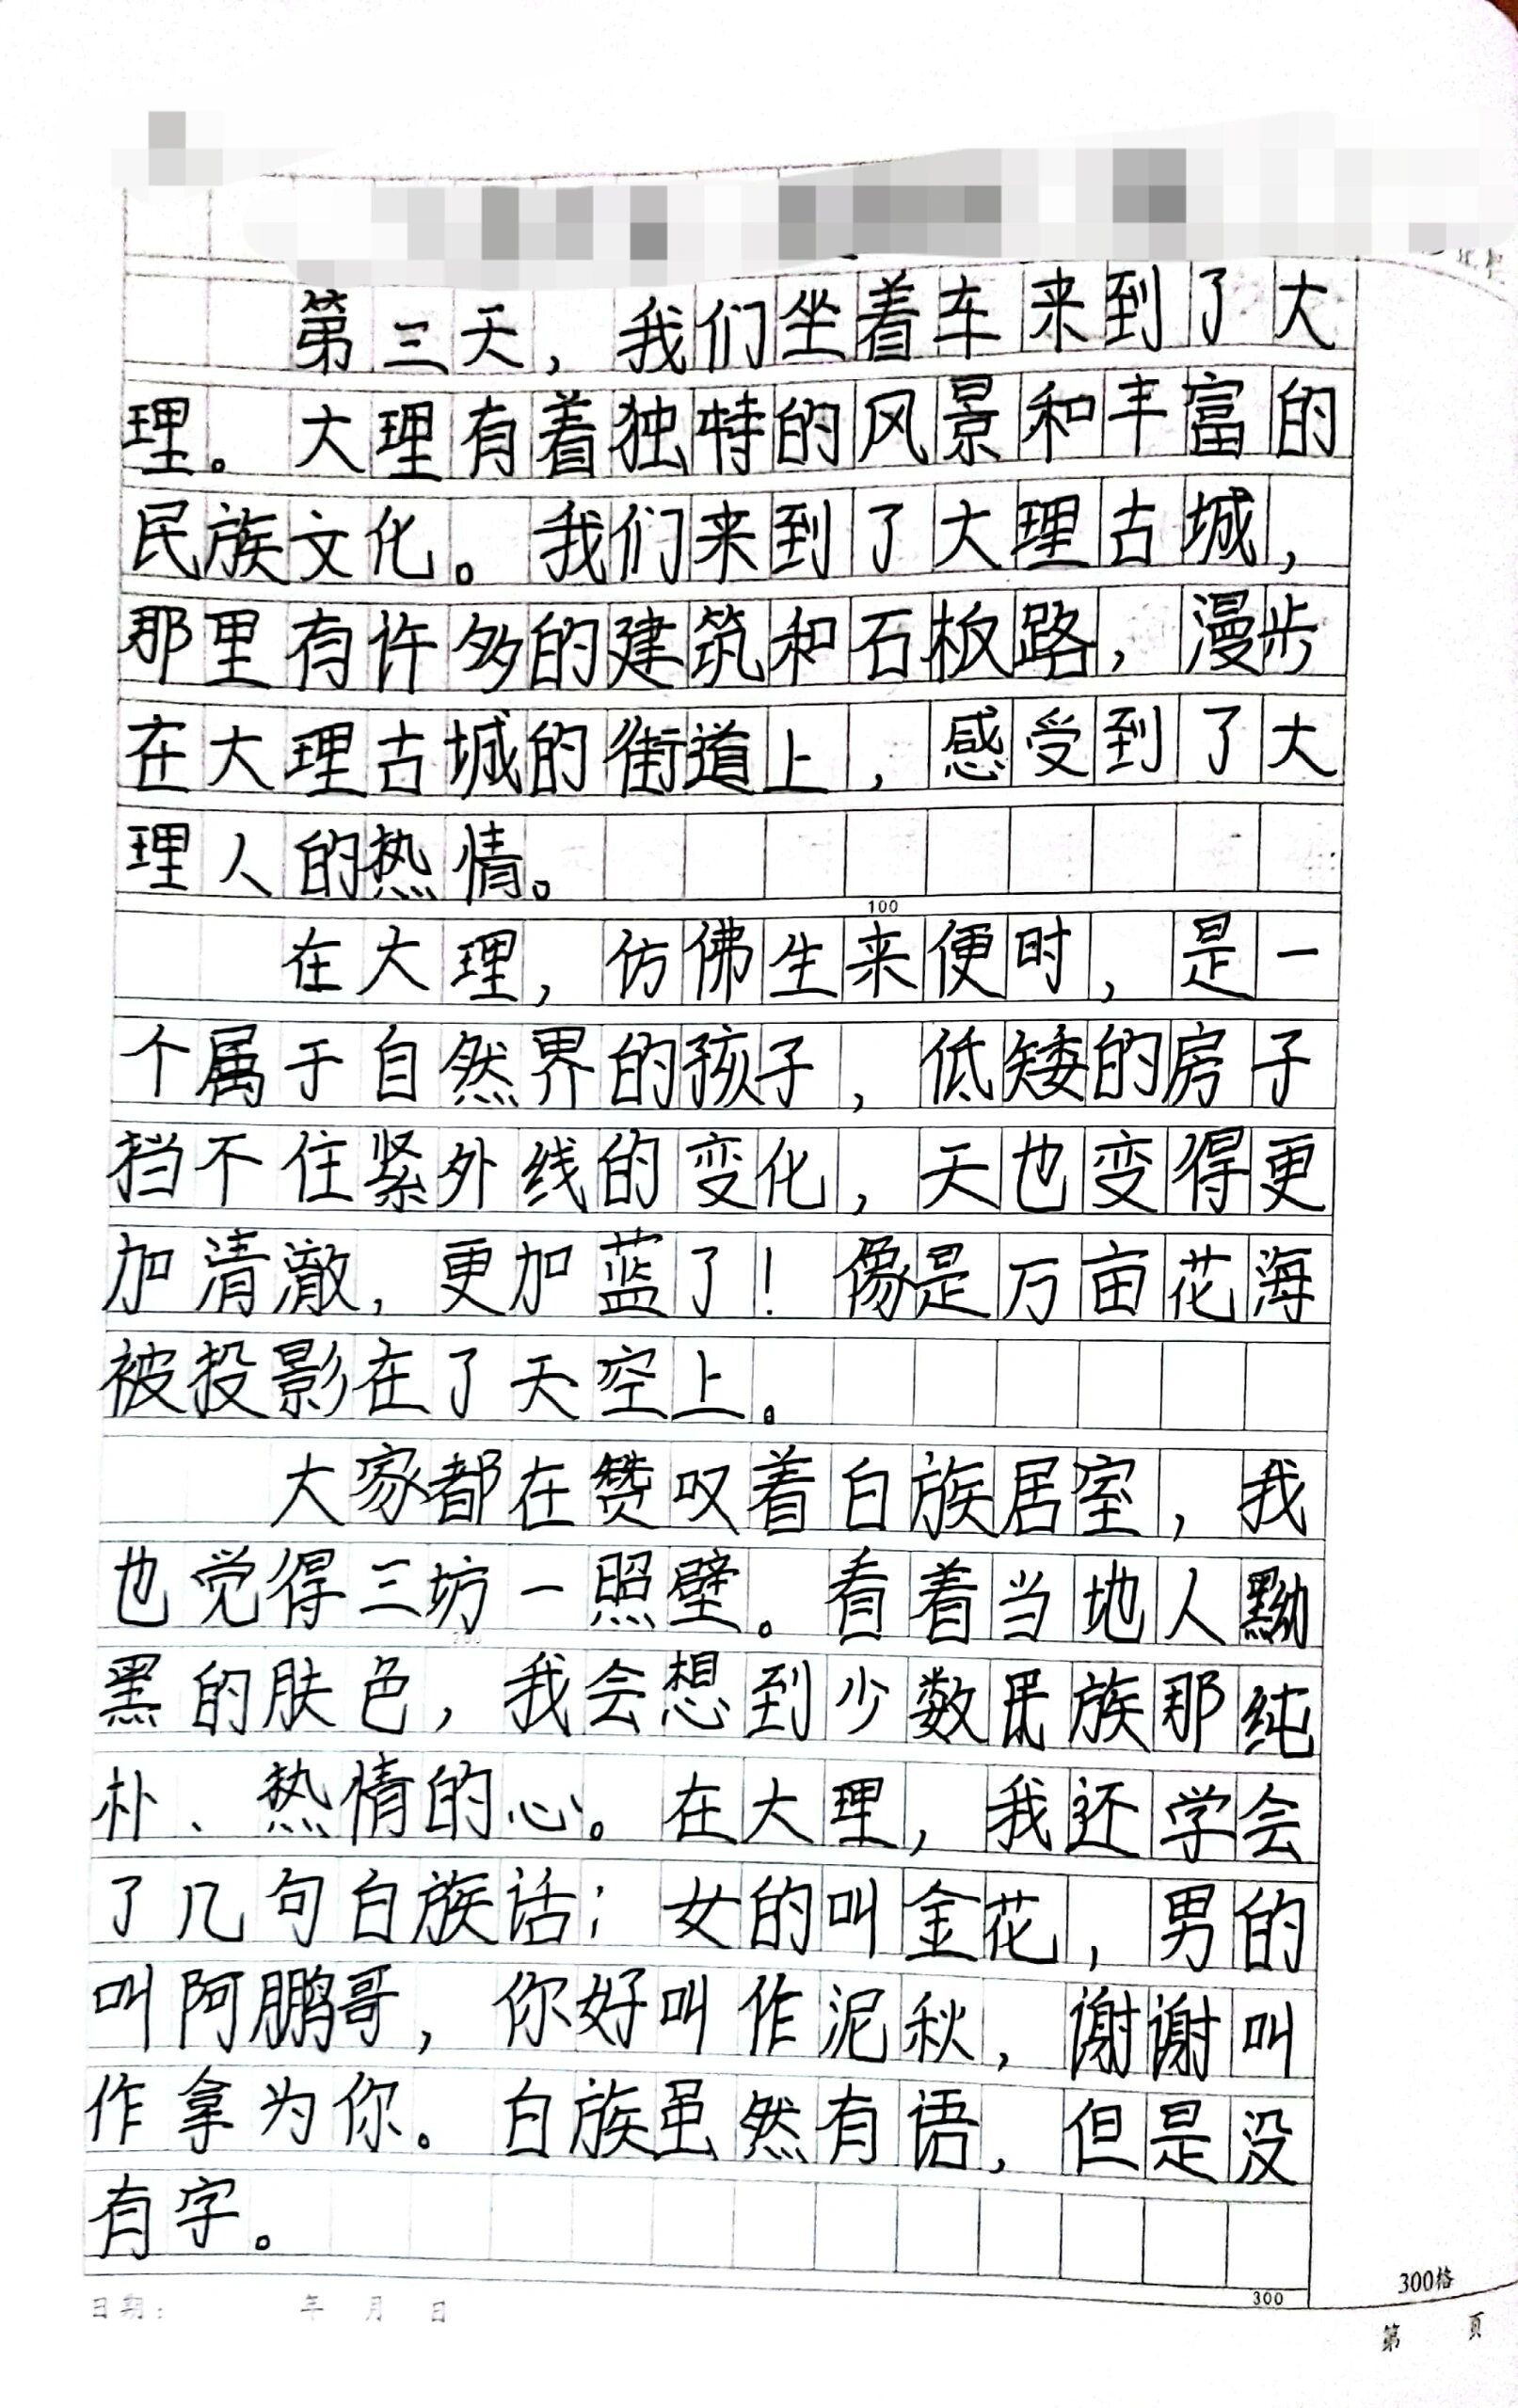 第三天，我们坐着车来到了大
理。大理有着独特的风景和丰富的
民族文化。我们来到了大理古城，
那里有许多的建筑和石板路，漫步
在大理古城的街道上，感受到了大
理人的热情。
100
在大理，仿佛生来便时，是一
个属于自然界的孩子，低矮的房子
挡不住紧外线的变化，天也变得更
加清澈，更加蓝了！像是万亩花海
被投影在了天空上。
大家都在赞叹着白族居室，我
也觉得三坊一照壁。看着当地人黝
黑的肤色，我会想到少数民族那纯
朴、热情的心。在大理，我还学会
了几句白族话；女的叫金花，男的
叫阿鹏哥，你好叫作泥秋，谢谢叫
作拿为你。白族虽然有语，但是没
有字。
300
300格
日期： 年 月 日
第 页